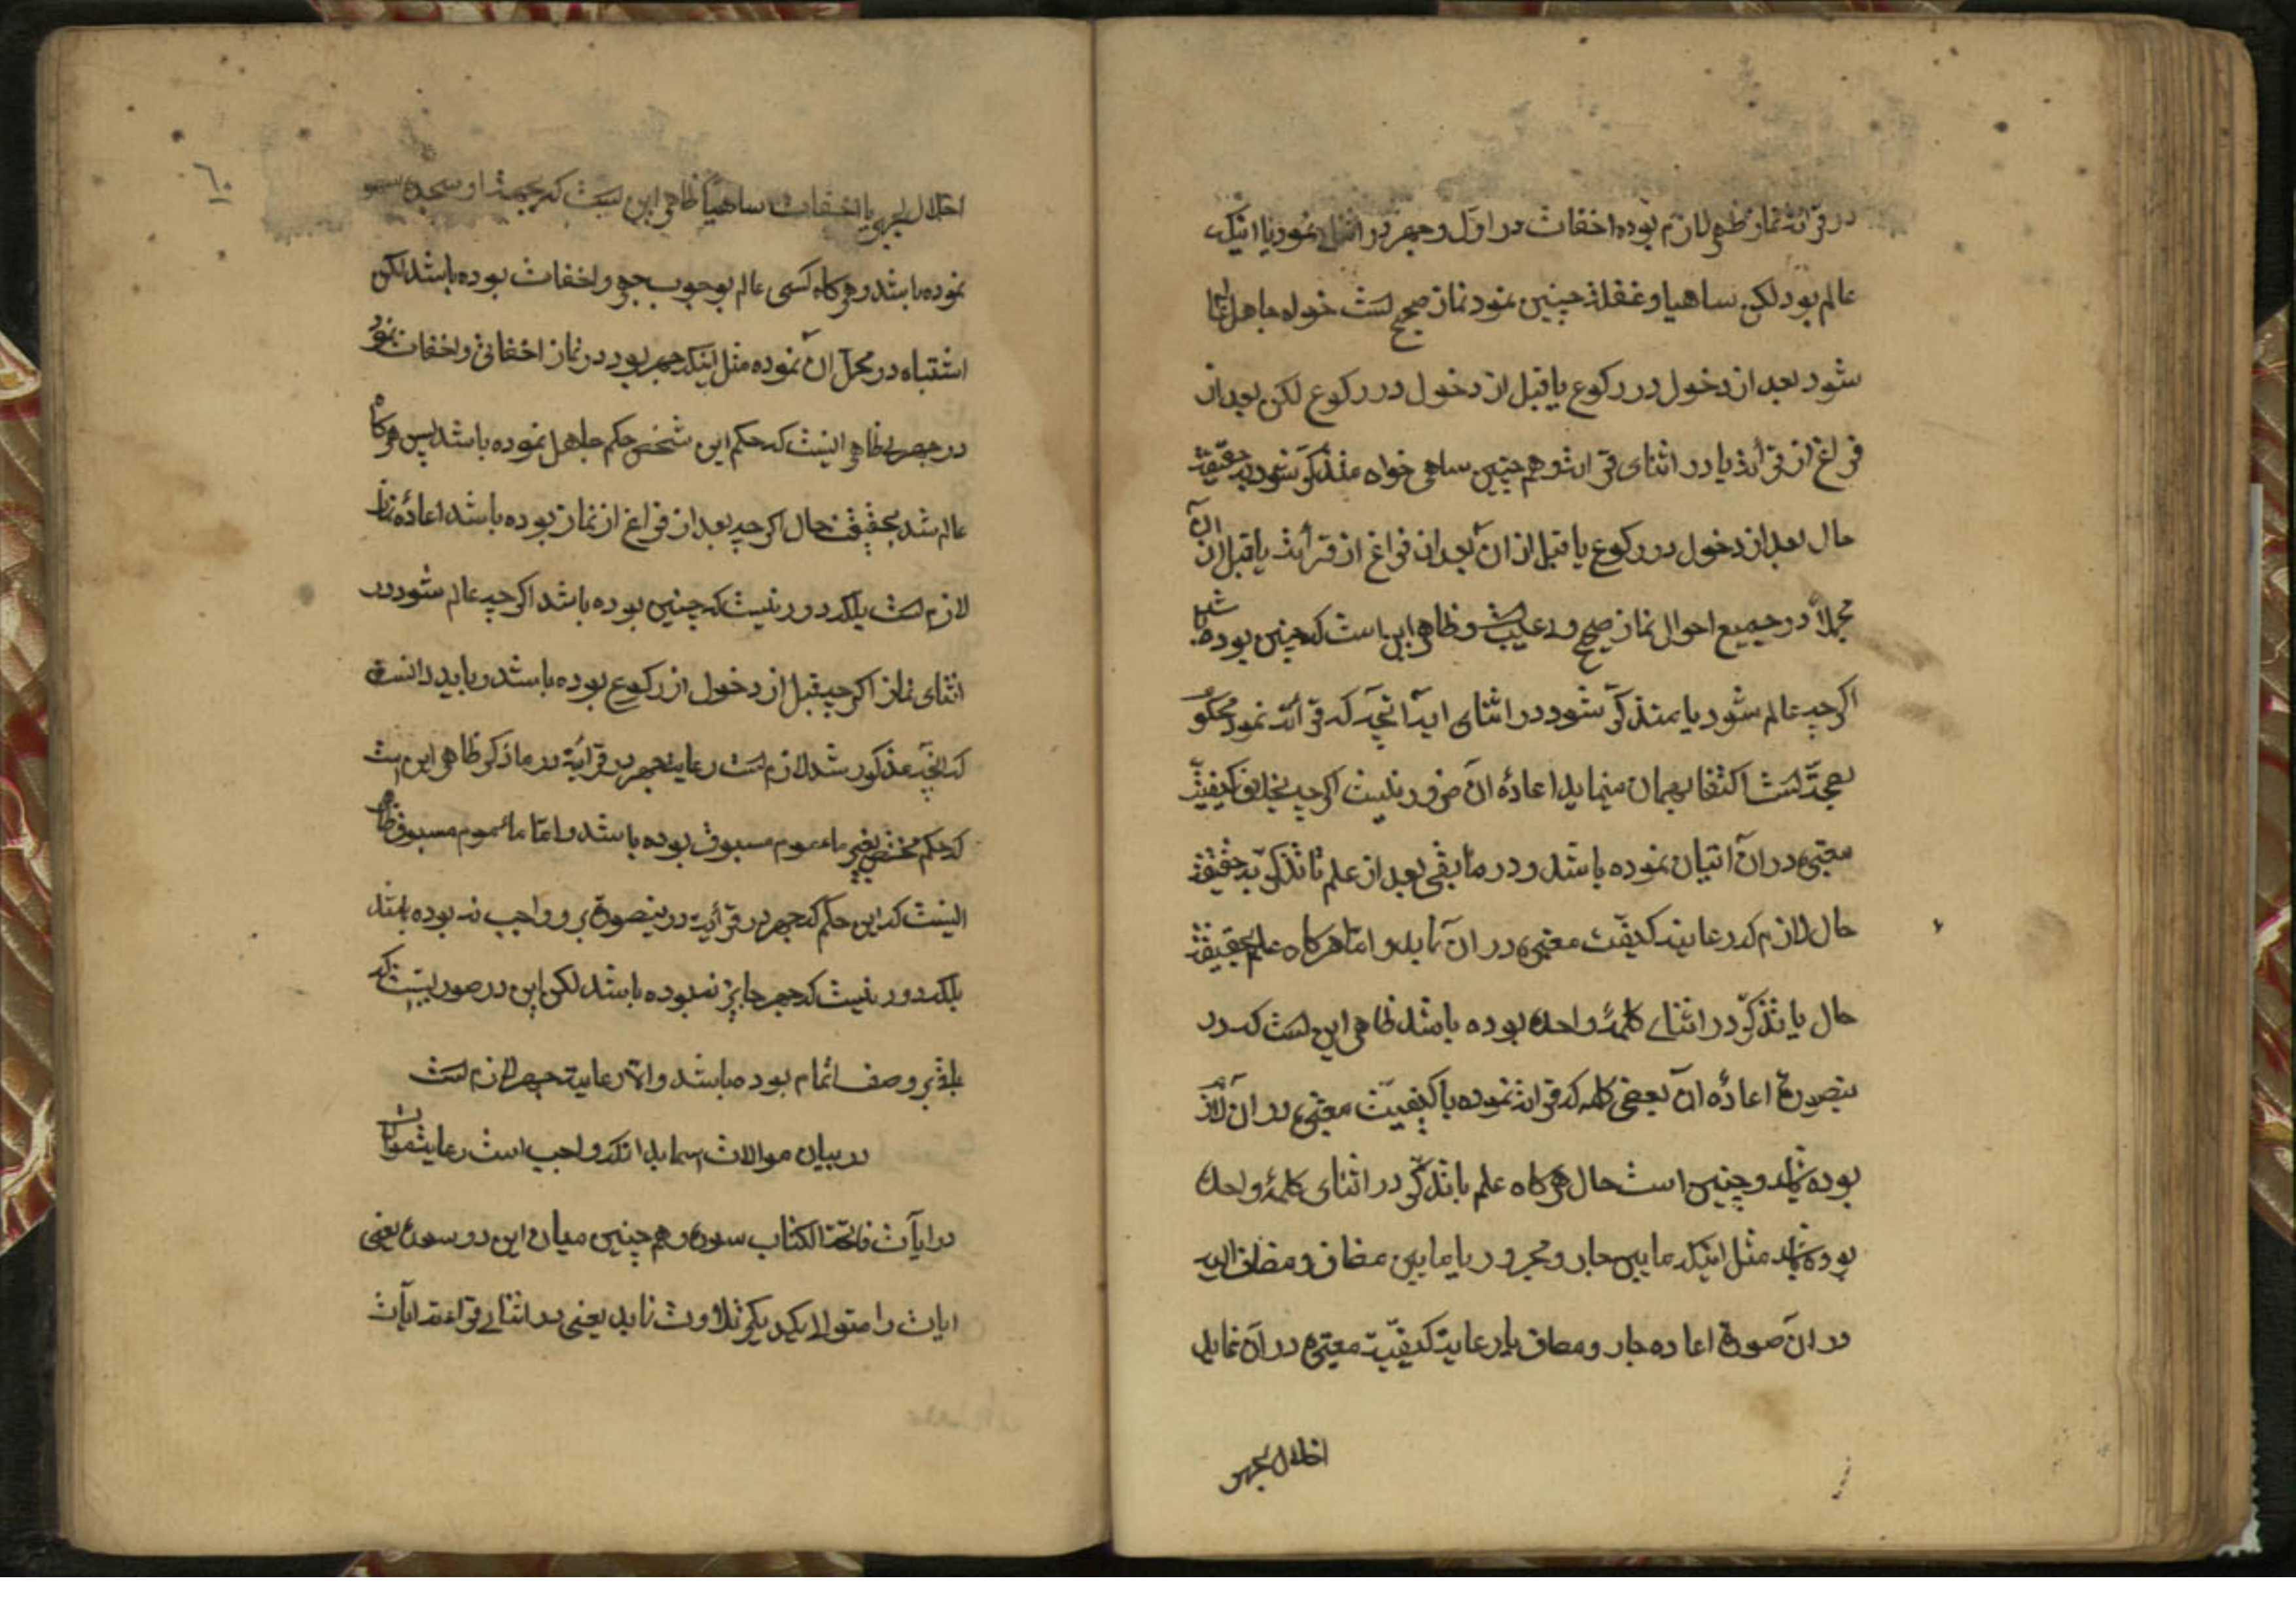 در قرائة نماز ظهر لازم بوده اخفات در اول و جهر در اثنا نمود یا اینکه
عالم بود لکن ساهیا و غفلة چنین نمود نماز صحیح است خواه جاهل عالم
شود بعد از دخول در رکوع یا قبل از دخول در رکوع لکن بعد از
فراغ از قرائة یا در اثنای قرائة و هم چنین ساهی خواه متذکر شود بحقیقت
حال بعد از دخول در رکوع یا قبل از ان بعد از فراغ از قرائة یا قبل از ان
مجملا در جمیع احوال نماز صحیح و بی عیب است و ظاهر این است که چنین بوده باشد
اکر چه عالم شود یا متذکر شود در اثنای ایه انچه که قرائة نمود محکوم
بصحة است اکتفا بهمان مینماید اعادهٔ ان ضرور نیست اکر چه بخلاف کیفیّت
معتبره در ان اتیان نموده باشد و در مابقی بعد از علم یا تذکر به حقیقت
حال لازم که رعایة کیفیّت معتبره در ان نماید و امّا هرکاه علم بحقیقت
حال یا تذکر در اثنای کلمهٔ واحده بوده باشد ظاهر این است که در
ینصورة اعادهٔ ان بعض کلمه که قرائة نموده با کیفیّت معتبره در ان لازم
بوده باشد و چنین است حال هرکاه علم یا تذکر در اثنای کلمهٔ واحده
بوده باشد مثل اینکه مابین جار و مجرور یا مابین مضاف و مضاف الیه
در ان صورة اعاده جار و مضاف با رعایة کیفیّت معتبره در ان نماید
اخلال بجهر
٦٠
اخلال بجهر یا اخفات ساهیا ظاهر این است که بجهة او سجده سهو
نموده باشد و هرکاه کسی عالم بوجوب جهر و اخفات بوده باشد لکن
اشتباه در محل ان نموده مثل اینکه جهر نمود در نماز اخفاتی و اخفات نمود
در جهریه ظاهر اینست که حکم این شخص حکم جاهل نموده باشد پس هرکاه
عالم شد بحقیقت حال اکر چه بعد از فراغ از نماز بوده باشد اعادهٔ نماز
لازم است بلکه دور نیست که چنین بوده باشد اکر چه عالم شود در
اثنای نماز اکر چه قبل از دخول از رکوع بوده باشد و باید دانست
که انچه مذکور شد لازم است رعایة جهر در قرائة در ماذکر ظاهر این است
که حکم مختص بغیر ماءموم مسبوق بوده باشد و امّا مائموم مسبوق ظاهر
اینست که این حکم که جهر در قرائیه در ینصورة بر و واجب نه بوده باشد
بلکه دور نیست که جهر جایز نه بوده باشد لکن این در صورتیست که
باقی بر وصف ائتمام بوده باشد والّا رعایة جهر لازم است
در بیان موالات بدانکه واجب است رعایت موالات
در ایآت فاتحة الکتاب سوره و هم چنین میان این دو سوره یعنی
ایات را متوالی یکدیکر تلاوت نماید یعنی در اثنای قراءة ایآت